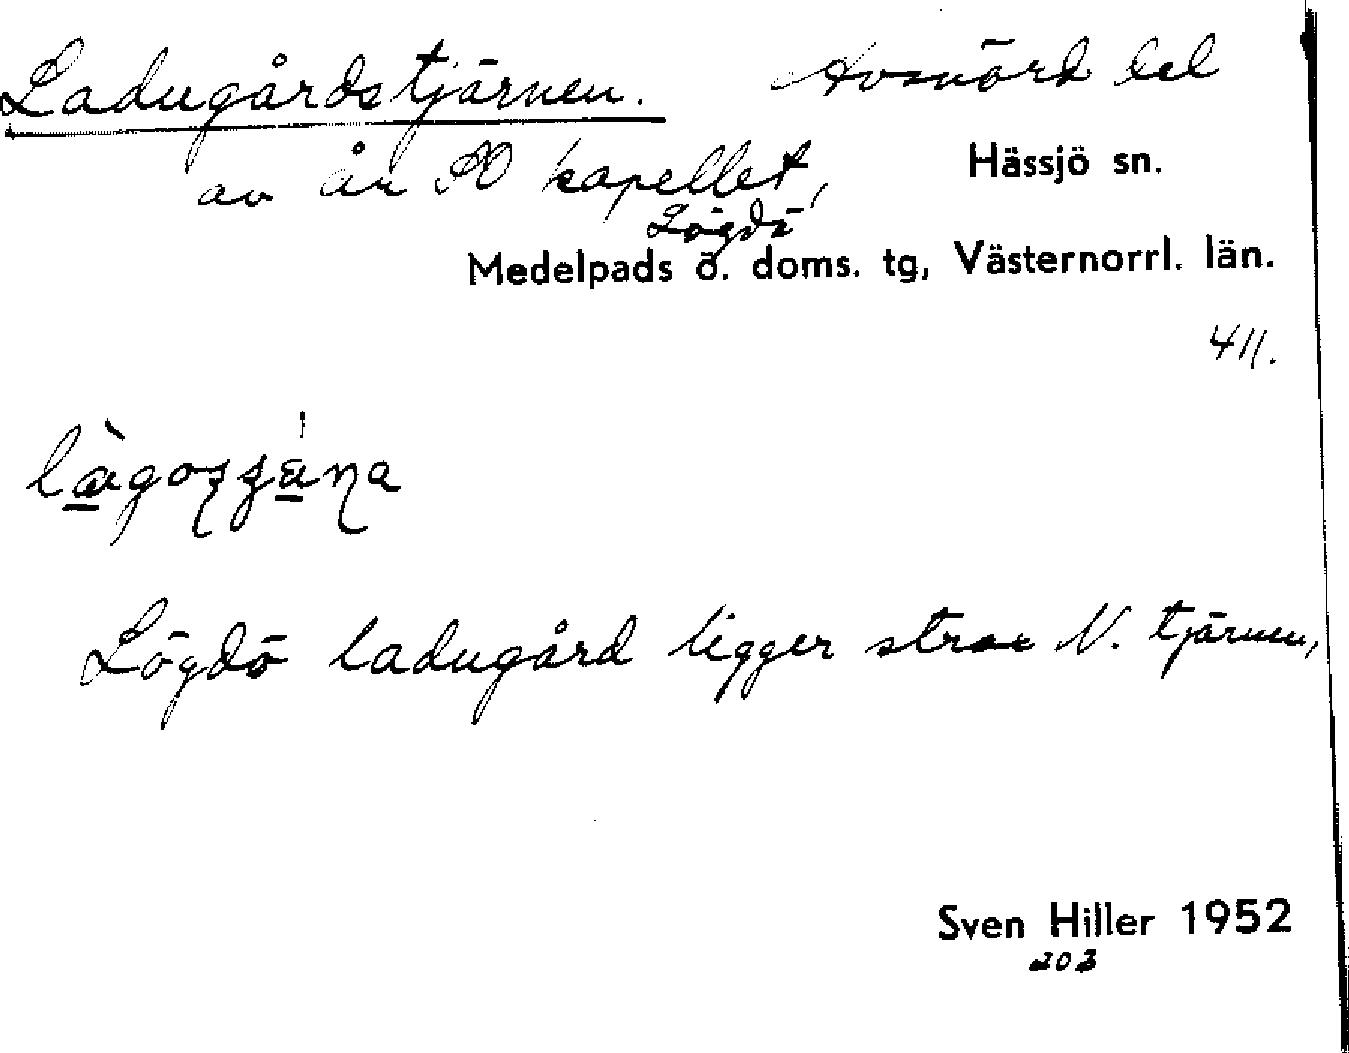 Ladugårdstjärnen. Avsnörd del
av ån SO kapellet, Hässjö sn.
Lögdö
Medelpads ö. doms. tg, Västernorrl. län.
411.
Lögdö ladugård ligger strax N. tjärnen,
Sven Hiller 1952
203